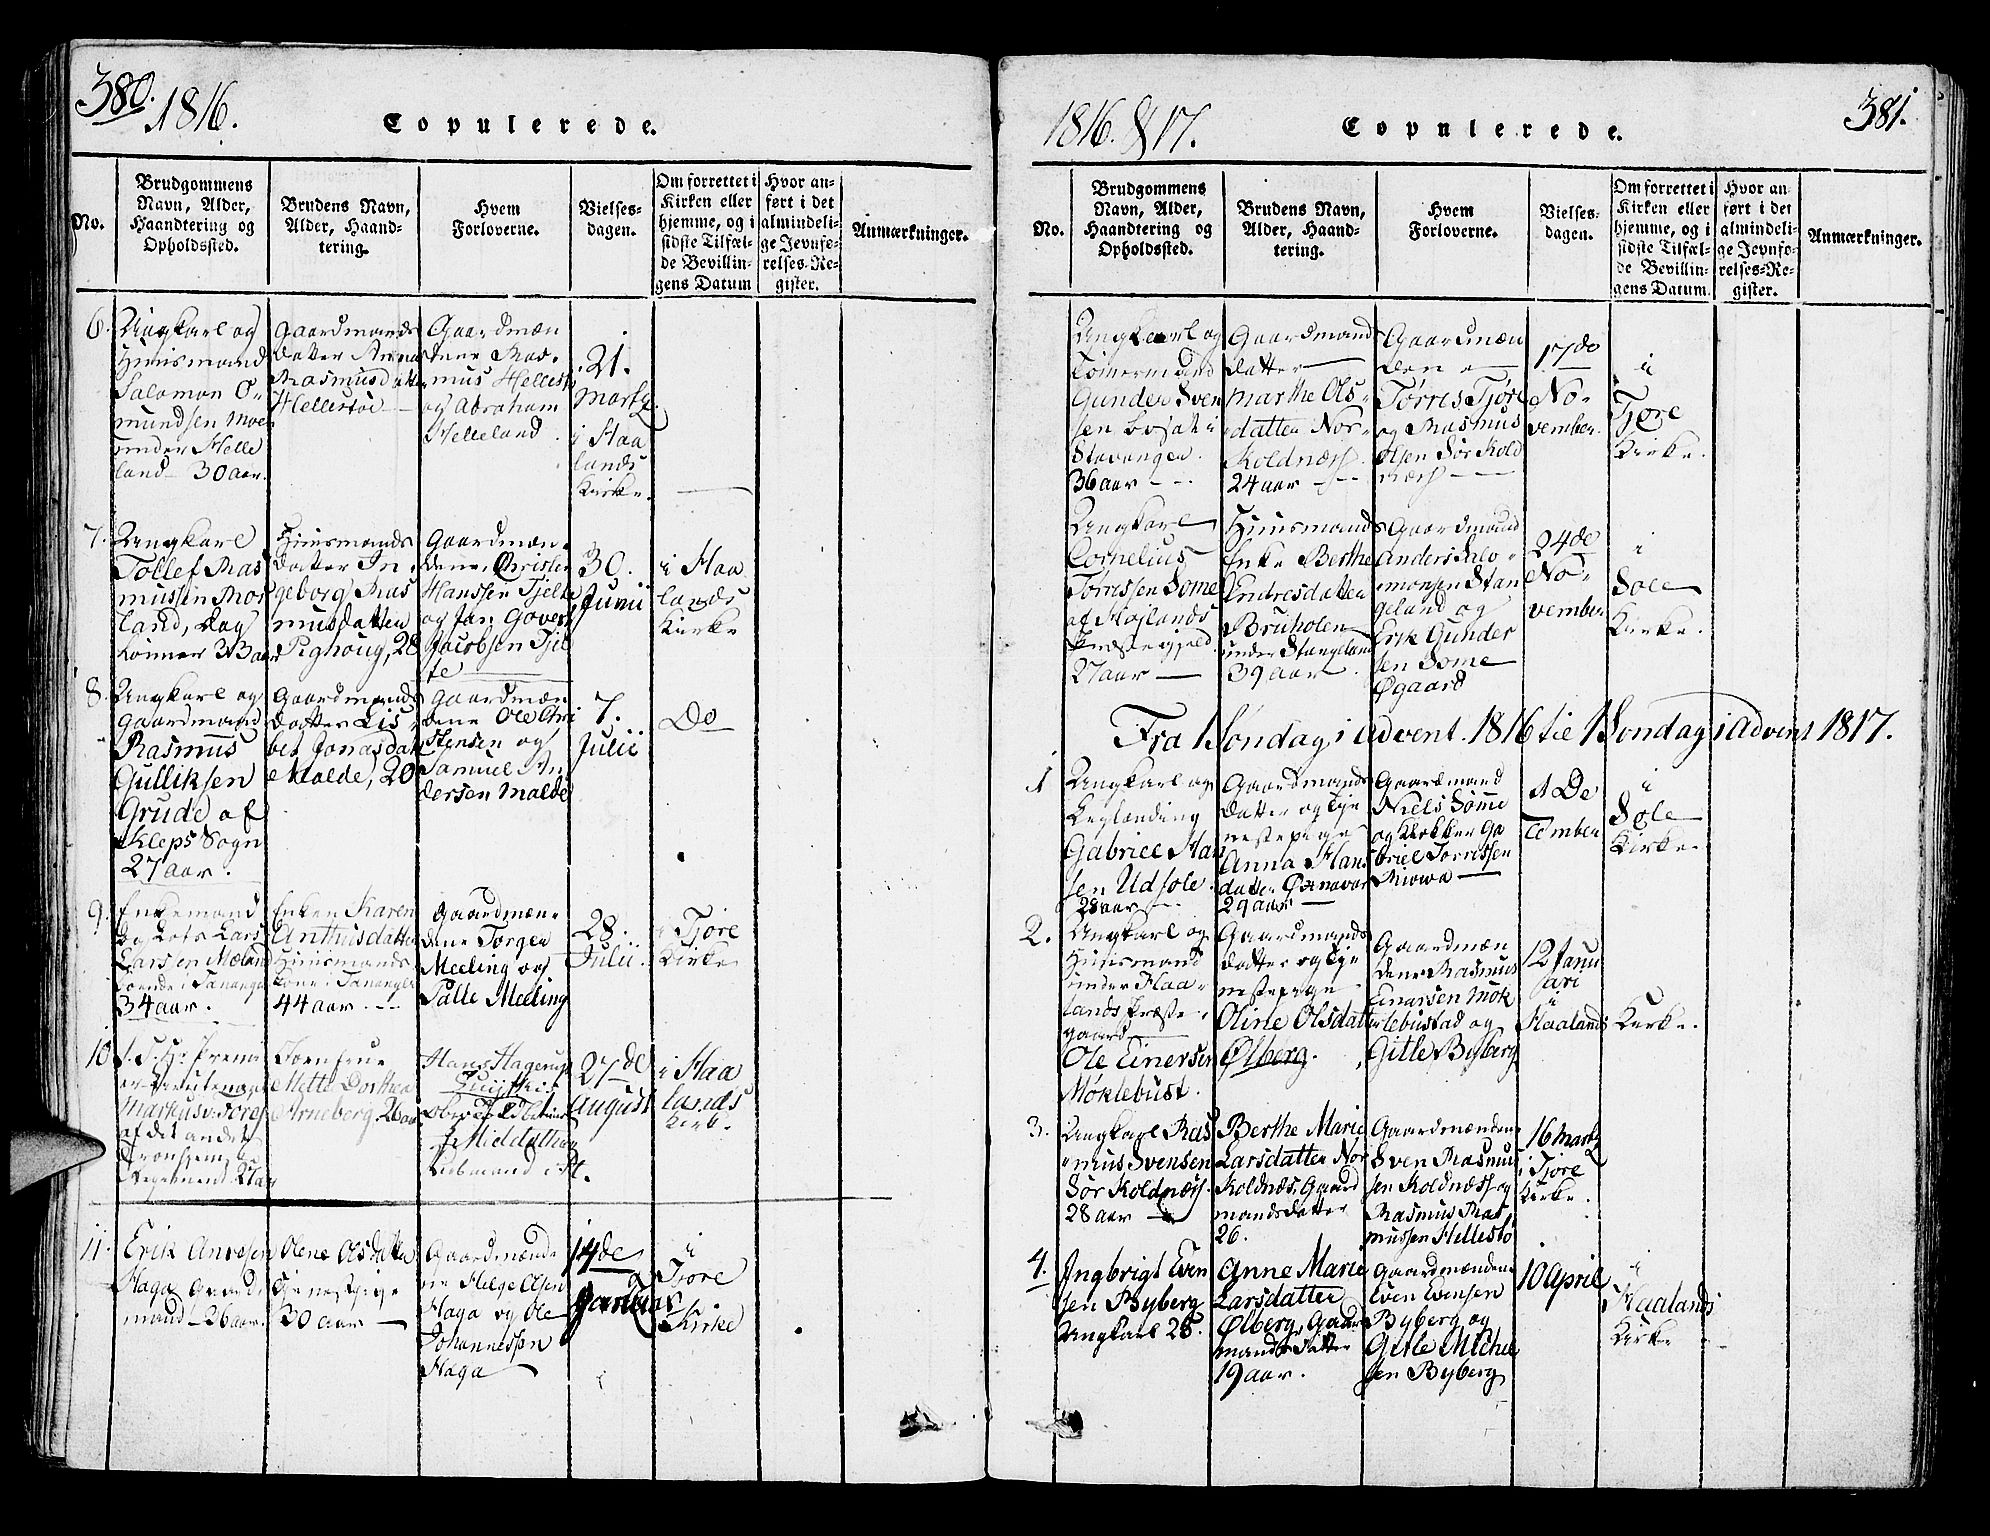 380.
1816.
Copulerede.
No.
Brudgommens
Navn, Alder,
Haandtering og
Opholdssted.
Brudens Navn,
Alder, Haand-
tering.
Hvem
Forloverne.
Vielses-
dagen.
Om forrettet i
Kirken eller
hjemme, og i
sidste Tilfæl-
de Bevillin-
gens Datum
Hvor an-
ført i det
almindeli-
ge Jevnfø-
relses-Re-
gister.
Anmærkninger.
6.
Ungkarl og
Huusmand
Salomon O-
mundsen Moe
under Helle
land 30 aar.
Gaardmands
Datter Anna
Rasmusdatter
Hellestøe
Gaardmæn
dene Ras-
mus Hellestø
og Abraham
Helleland
21.
Martz
i Haa
lands
Kirke.
7.
Ungkarl
Tollef Ras
mussen Ros
land, Dag
lønner 33 aar
Huusmands
Datter In-
geborg Ras
musdatter
Pighoug, 28
Gaardmæn-
dene, Christen
Hanssen Tjelte
og Jan Govert
Jacobsen Tjel
te
30.
Junii
i Haa
lands
Kirke
8.
Ungkarl og
Gaardmand
Rasmus
Gulliksen
Grude af
Kleps Sogn
27 aar.
Gaardmands
Datter Lis
bet Jonasdatter
Malde, 20
Gaardmæn
dene Ole Chri
stensen og
Samuel An
dersen Malde
7.
Julii
Do
9.
Enkemand
og Lods Lars
Larsen Meland
boende i Tananger
34 aar.
Enken Karen
Anthusdatter
Huusmands
kone i Tananger
44 aar.
Gaardmæn-
dene Torger
Meeling og
Palle Meeling
28.
Julii.
i Tjore
Kirke
10
S. T. Hr. Premi
er Lieutenant
Markus
af det andet
Tronhjemske
Regiment 27 aar
Jomfrue
Mette Dorthea
Arneberg, 26 aar
Hans Hagerup
27de
August
i Haa
lands
Kirk.
11.
Erik
Haga Gaard
mand 26 aar.
Olene Olsdatter
Tjenestpige
30 aar
Gaardmænde
ne Helge Olsen
Haga og Ole
Johannessen
Haga
14de
i
Tjore
Kirke
1816. & 17.
Copulerede.
381.
No.
Brudgommens
Navn, Alder,
Haandtering og
Opholdssted.
Brudens Navn,
Alder, Haand-
tering.
Hvem
Forloverne.
Vielses-
dagen.
Om forrettet i
Kirken eller
hjemme, og i
sidste Tilfæl-
de Bevillin-
gens Datum.
Hvor an
ført i det
almindeli-
ge Jevnfø-
relses-Re-
gister.
Anmærkninger.
Ungkarl og
Tømermand
Gunder Sven
sen bosat i
Stavanger.
36 aar
Gaardmands
datter
Marthe Ols-
datter Nor-
Koldnæss
24 aar
Gaardmæn
dene
Tørres Tjøre
og Rasmus
Olsen Sør Kold
næss
17de
No-
vember.
i
Tjøre
Kirke.
Ungkarl
Cornelius
Tørressen Sømme
af Høilands
Præstegjeld.
27 aar
Huusmands
Enke Berthe
Endresdatter
Bruholen
under Stangeland
39 aar
Gaardmand
Anders Salo-
monsen Stan
geland og
Erik Gunder
sen Sømme
Øgaard
24de
No-
vember
i
Sole
Kirke.
Fra 1 Søndag i Advent 1816 til 1 Søndag i Advent 1817.
1
Ungkarl og
Gabriel Han
sen Udsole.
28 aar
Gaardmands
datter og tje
nestepige
Anna Hans
datter
29 aar
Gaardmand
Niels Sømme
og Klokker Ga
briel Torrissen
1 De
cember
i
Sole
Kirke.
2.
Ungkarl og
Huusmand
under Haa-
lands Præste-
gaard
Ole Einersen
Møklebust.
Gaardmands
datter og tje
nestepige
Oline Olsdatter
Ølberg.
Gaardmæn
dene Rasmus
Einarsen Møk
lebustad og
Gitle Byberg
12 Janu
ari
i
Haalands
Kirke.
3.
Ungkarl Ras
mus Svensen
Sør Koldnæss.
28 aar
Berthe Marie
Larsdatter Nor
Koldnæs, Gaard
mandsdatter
26.
Gaardmændene
Sven Rasmus
sen Koldnæss og
Rasmus Ras
mussen Hellestø
16 Martz
i Tjore
Kirke.
4.
Ingbrigt Even
sen Byberg
Ungkarl 26.
Anne Marie
Larsdatter
Ølberg, Gaard
mands Datter
19 aar.
Gaardmændene
Even Evensen
Byberg og
Gitle Michel
sen Byberg
10 April
i
Haalands
Kirke